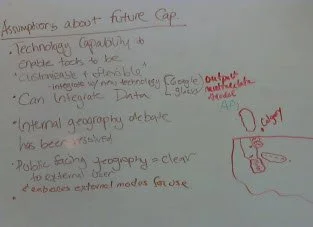 Assumptions about Future Cap.
• Technology Capability to
enable tools to be
"Customizable & extensible"
integrate w/ new technology (Google
glass
output
neutral data
• Can Integrate Data
API
• Internal geography debate
has been resolved
Calgary
• Public facing geography = clear
to external user
& embraces external modes for use